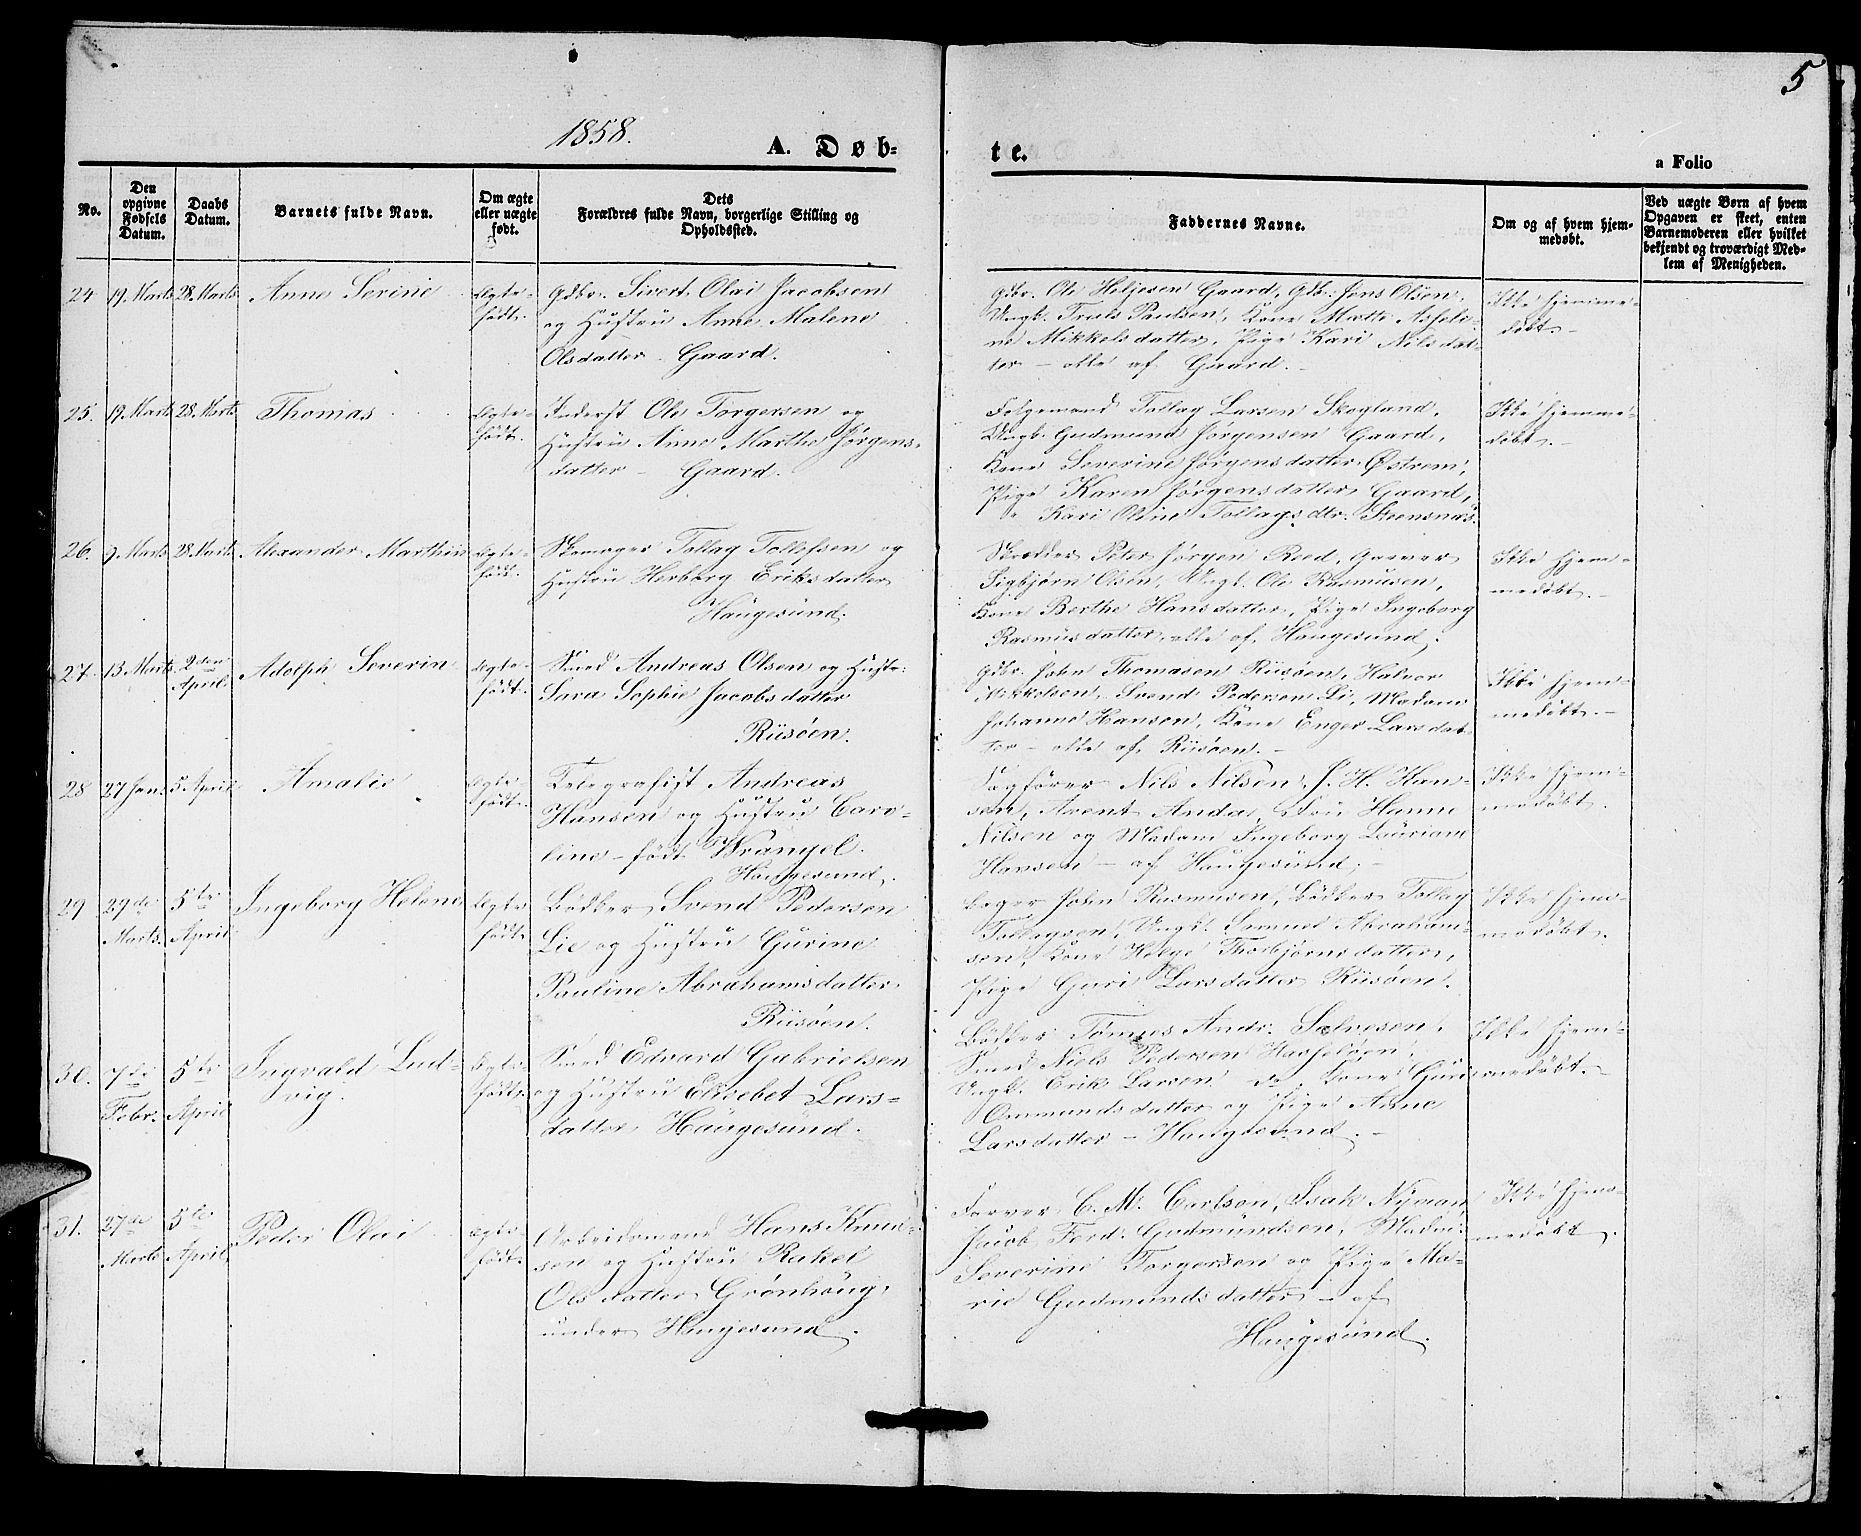 5
1858.
A. Døb-
te.
a Folio
No.
Den opgivne Fødsels Datum.
Daabs Datum.
Barnets fulde Navn.
Om ægte eller uægte født.
Dets
Forældres fulde Navn, borgerlige Stilling og
Opholdssted.
Faddernes Navne.
Om og af hvem hjem-
medøbt.
Ved uægte Børn af hvem
Opgaven er skeet, enten
Barnemoderen eller hvilket
bekjendt og troværdigt Med-
lem af Menigheden.
24 19. Marts 28. Marts Anne Serine Ægte-
født.
Gdbr. Sivert Olai Jacobsen
og Hustru Anne Malene
Olsdatter Gaard.
Gdbr. Ole Heljesen Gaard, Gdb. Jens Olsen,
Ungk. Truls Paulsen, Kone Mette Asseli-
ne Mikkelsdatter, Pige Kari Nilsdat-
ter – alle af Gaard.
Ikke hjemme-
døbt.
25. 19. Marts 28. Marts Thomas Ægte-
født.
Inderst Ole Torgersen og
Hustru Anne Marthe Jørgens-
datter – Gaard.
Følgemand Tollag Larsen Skogland,
Ungk. Gudmund Jørgensen Gaard,
Kone Severine Jørgensdatter Østrem,
Pige Karen Jørgensdatter Gaard,
Kari Oline Tollagsdtr.
Ikke hjemme-
døbt.
26. 9. Marts 28. Marts Alexander Marthin Ægte-
født.
Skomager Tollag Tollefsen og
Hustru Herborg Eriksdatter
Haugesund.
Skrædder Peter Jørgen Roed, Garver
Sigbjørn Olsen, Ungk. Ole Rasmusen,
Kone Berthe Hansdatter, Pige Ingeborg
Rasmusdatter, alle af Haugesund.
Ikke hjem-
medøbt.
27. 13. Marts 2den
April
Adolph Severin Ægte-
født.
Smed Andreas Olsen og Hustr:
Sara Sophie Jacobsdatter
Riisøen.
Gdbr. John Thomasen Riisøen, Halvor
Mikkelsen, Svend Pedersen Li, Madam
Johanne Hansen, Kone Enger Larsdat-
ter – alle af Riisøen.
Ikke hjem-
medøbt.
28 27 Jan. 5 April Amalie Ægte
født.
Telegrafist Andreas
Hansen og Hustru Caro-
line – født Wrangel.
Haugesund.
Sagfører Nils Nilsen, J. H. Han-
sen, Arent Anda, Fru Hanne
Nilsen og Madam Ingeborg Lauriane
Hansen – af Haugesund.
Ikke hjem-
medøbt.
29 29de
Marts.
5te
April
Ingeborg Helene Ægte
født
Bødker Svend Pedersen
Lie og Hustru Gurine
Pauline Abrahamsdatter
Riisøen.
Bager John Rasmusen, Bødker Tollag
Tollagsen, Ungk. Samuel Abraham-
sen, Kone Helge Thorbjørnsdatter,
Pige Guri Larsdatter Riisøen.
Ikke hjem-
medøbt.
30. 7de
Febr.
5te
April
Ingvald Lud-
vig.
Ægte
født.
Smed Edvard Gabrielsen
og Hustru Elisebet Lars-
datter Haugesund.
Bødker Tønnes Andr. Salvesen,
Smed Niels Pedersen Hasseløen,
Ungk. Erik Larsen do, Kone Guri
Ommundsdatter og Pige Anne
Larsdatter – Haugesund.
Ikke hjem-
medøbt.
31. 27de
Marts
5te
April
Peder Olai Ægte
født.
Arbeidsmand Hans Knud-
sen og Hustru Rakel
Olsdatter Grønhaug,
under Haugesund.
Farver C. M. Carlsen, Isak Nyman,
Jacob Ferd. Gudmundsen, Madm.
Severine Torgersen og Pige Ma-
rie Gudmundsdatter – af
Haugesund.
Ikke hjem-
medøbt.